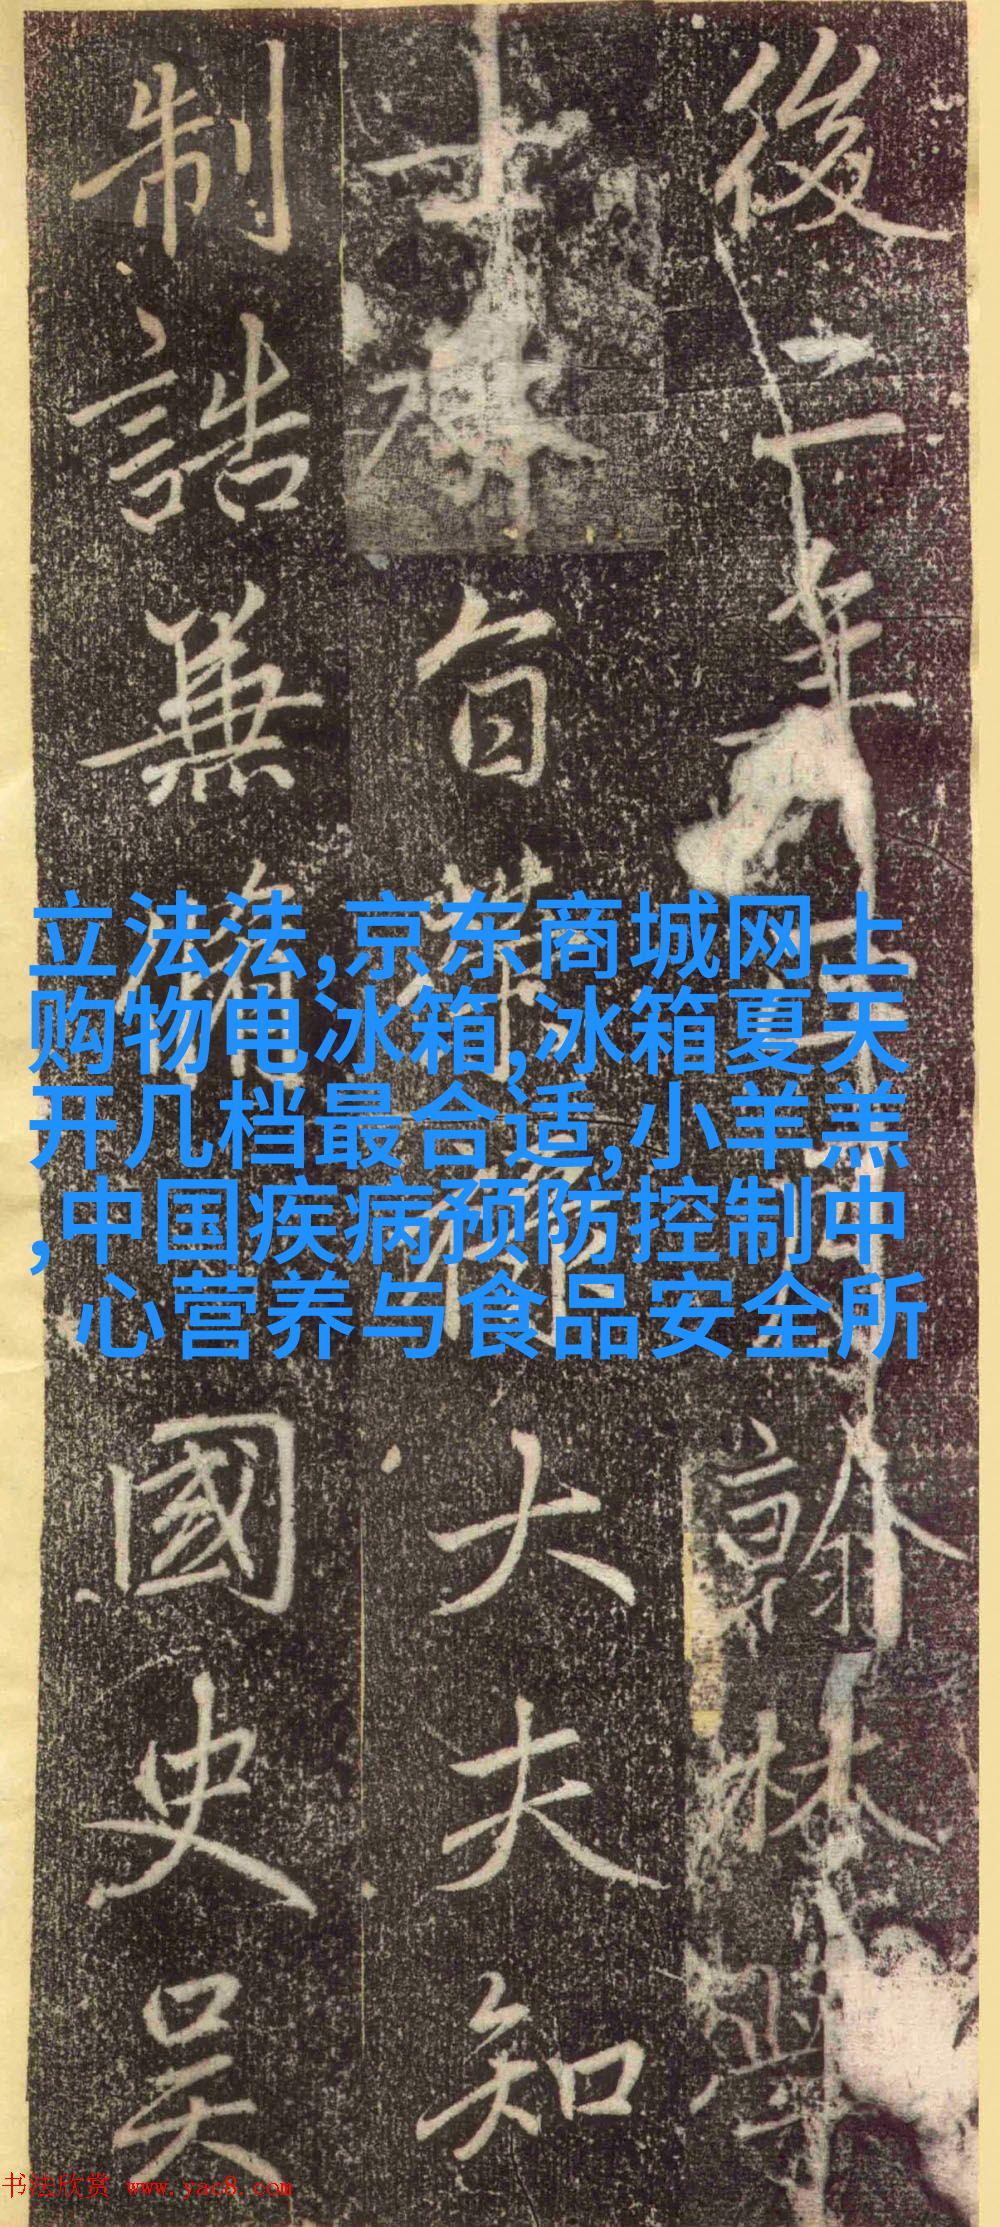 後二年正月翰林學
士奉旨榮祿大夫知
制誥兼脩國史吴
立法法,京东商城网上
购物电冰箱,冰箱夏天
开几档最合适,小羊羔
,中国疾病预防控制中
心营养与食品安全所
书法欣赏 www.yac8.com